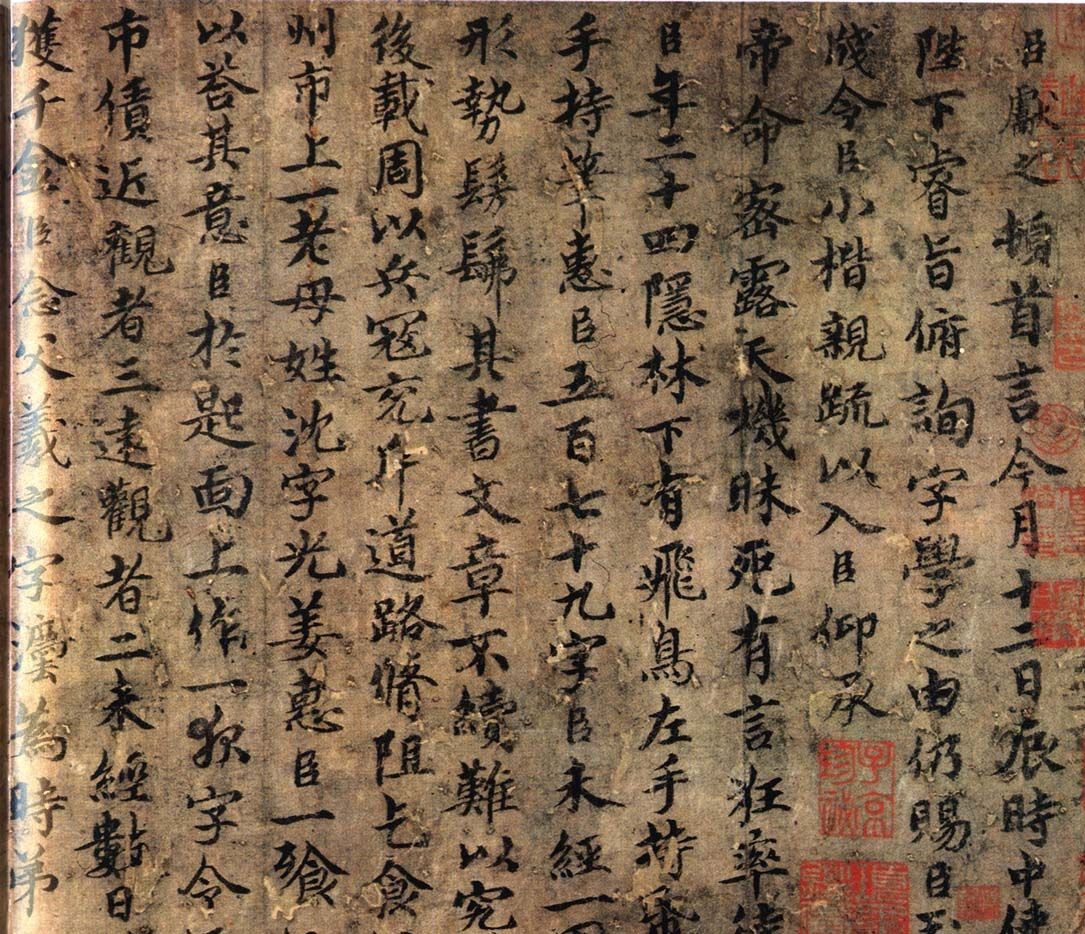 臣獻之頓首言今月十三日辰時中使
陛下睿旨俯詢字學之由仍賜臣玉
令臣小楷親疏以入臣仰承
帝命密露天機昧死有言狂率待
臣年二十四隱林下有飛鳥左手
手持筆惠臣五百七十九字臣未經一
形勢髣髴其書文章不續難以究
後載周以兵寇充斥道路脩阻乞食
州市上一老母姓沈字光姜惠臣一飡
以荅其意臣於匙面上作一夜字令
市債近觀者三遠觀者二未經數日
獲千金臣念父羲之字灋為時第